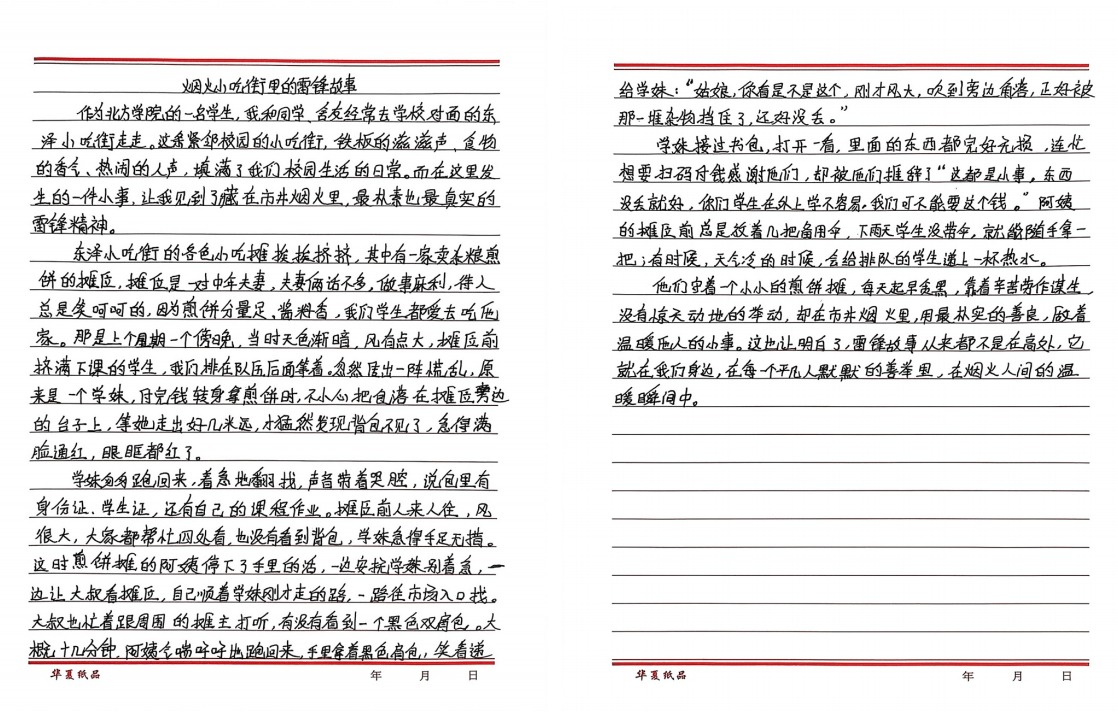 烟火小吃街里的雷锋故事
作为北方学院的一名学生,我和同学、舍友经常去学校对面的东
泽小吃街走走。这条紧邻校园的小吃街,铁板的滋滋声、食物
的香气、热闹的人声,填满了我们校园生活的日常。而在这里发
生的一件小事,让我见到了藏在市井烟火里,最朴素也最真实的
雷锋精神。
东泽小吃街的各色小吃摊挨挨挤挤,其中有一家卖杂粮煎
饼的摊位,摊位是一对中年夫妻,夫妻俩话不多,做事麻利,待人
总是笑呵呵的,因为煎饼分量足、酱料香,我们学生都爱去吃他
家。那是上个星期一个傍晚,当时天色渐暗,风有点大,摊位前
挤满下课的学生,我们排在队伍后面等着。忽然传出一阵慌乱,原
来是一个学妹,付完钱转身拿煎饼时,不小心把包落在摊位旁边
的台子上,等她走出好几米远,才猛然发现背包不见了,急得满
脸通红,眼眶都红了。
学妹匆匆跑回来,着急地翻找,声音带着哭腔,说包里有
身份证、学生证,还有自己的课程作业。摊位前人来人往,风
很大,大家都帮忙四处看,也没有看到背包,学妹急得手足无措。
这时煎饼摊的阿姨停下了手里的活,一边安抚学妹别着急,一
边让大叔看摊位,自己顺着学妹刚才走的路,一路往市场入口找。
大叔也忙着跟周围的摊主打听,有没有看到一个黑色双肩包。大
概十几分钟,阿姨气喘吁吁地跑回来,手里拿着黑色肩包,笑着递
华夏纸品 年 月 日
给学妹:“姑娘,你看是不是这个,刚才风大,吹到旁边角落,正好被
那一堆杂物挡住了,还好没丢。”
学妹接过书包,打开一看,里面的东西都完好无损,连忙
想要扫码付钱感谢他们,却被他们推辞了“这都是小事,东西
没丢就好,你们学生在外上学不容易,我们可不能要这个钱。”阿姨
的摊位前总是放着几把备用伞,下雨天学生没带伞,就能随手拿一
把;有时候,天气冷的时候,会给排队的学生递上一杯热水。
他们守着一个小小的煎饼摊,每天起早贪黑,靠着辛苦劳作谋生
没有惊天动地的举动,却在市井烟火里,用最朴实的善良,做着
温暖他人的小事。这也让明白了,雷锋故事从来都不是在高处,它
就在我们身边,在每个平凡人默默的善举里,在烟火人间的温
暖瞬间中。
华夏纸品 年 月 日